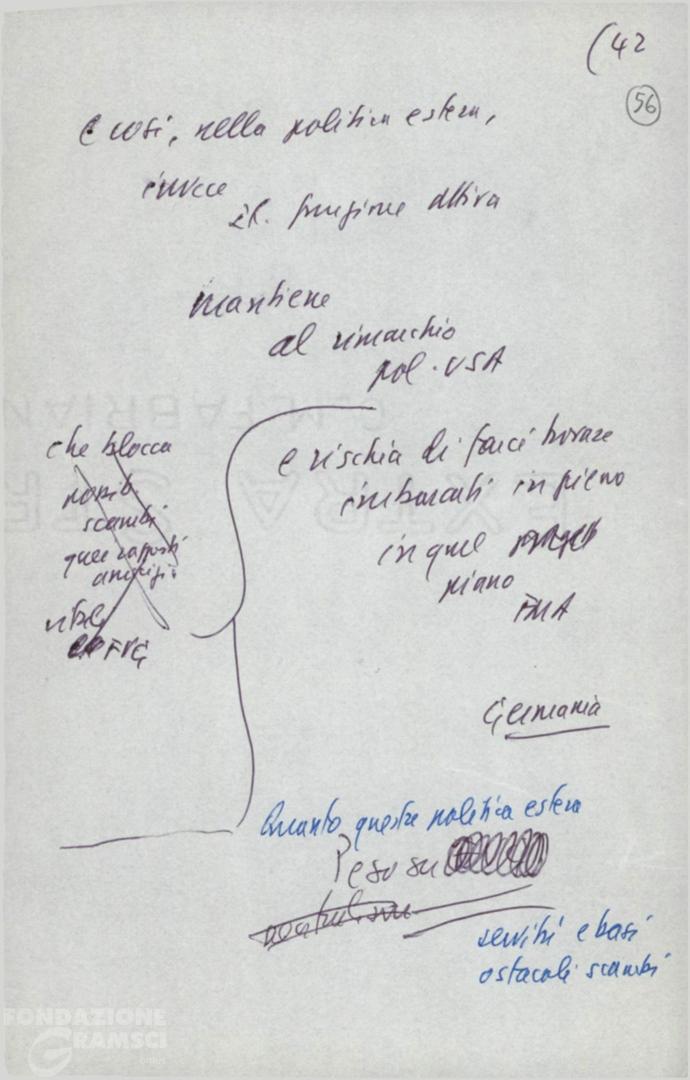 (42
56
E così, nella politica estera,
invece
di funzione attiva
mantiene
al rimorchio
pol. USA
e rischia di farci trovare
imbarcati in pieno
in quel
piano
FMA
Germania
che blocca
scambi
quei rapporti
Quanto questa politica estera
Peso su
servitù e basi
ostacoli scambi
FONDAZIONE
GRAMSCI